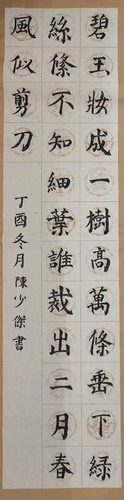 碧玉妝成一樹高萬條垂下綠
絲絛不知細葉誰裁出二月春
風似剪刀
丁酉冬月陳少傑書